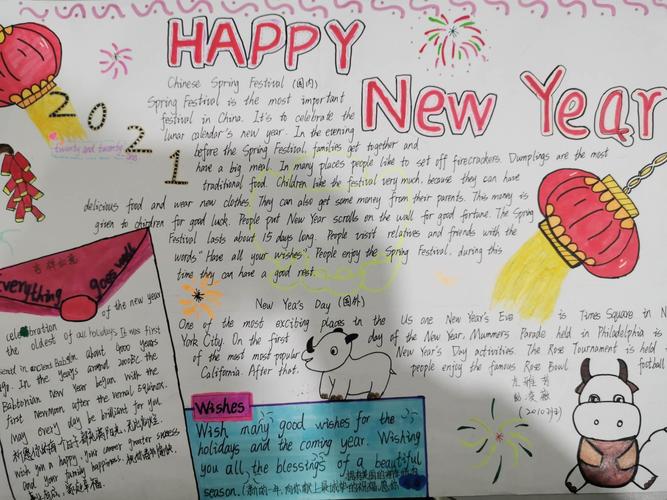 HAPPY
New Year
2021
twenty and twenty
one
Chinese Spring Festival (国内)
Spring Festival is the most important
festival in China. It's to celebrate the
lunar calendar's new year. In the evening
before the Spring Festival, families get together and
have a big meal. In many places people like to set off firecrackers. Dumplings are the most
traditional food. Children like the festival very much, because they can have
delicious food and wear new clothes. They can also get some money from their parents. This money is
given to children for good luck. People put New Year scrolls on the wall for good fortune. The Spring
Festival lasts about 15 days long. People visit relatives and friends with the
words "Have all your wishes". People enjoy the Spring Festival, during this
time they can have a good rest.
New Yea's Day (国外)
One of the most exciting places in the Us one New Year's Eve is Times Square in N
York City. On the first day of the New Year, Mummers Parade held in Philadelphia is
of the most most popular New Year's Day activities. The Rose Tournament is held
California. After that, people enjoy the famous Rose Bowl football
(2010313)
吉祥如意
Everything goes well
celebration of the new year
the oldest of all holidays. It was first
in ancient Babylon about 4000 years
ago. In the years around 2000BC the
Babtonian New Year began with the
first New Moon after the vernal Eqinex.
May every day be brilliant for you.
wish you a happy, your career greater success
and your family happiness.
Wishes
Wish many good wishes for the
holidays and the coming year. Wishing
you all the blessings of a beautiful
season. (新的一年,向你献上最诚挚的祝福,愿你